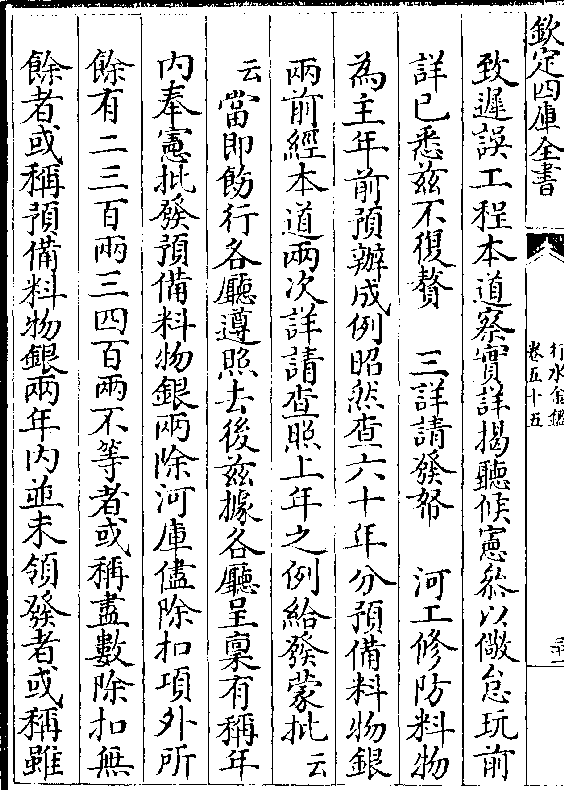 欽定四庫全書
行水金鑑
卷五十五
致遲誤工程本道察實詳揭聽候憲叅以儆怠玩前
詳已悉兹不復贅　三詳請發帑　河工修防料物
為主年前預辦成例昭然查六十年分預備料物銀
兩前經本道兩次詳請查照上年之例給發蒙批云
云當即飭行各廳遵照去後兹據各廳呈稟有稱年
内奉憲批發預備料物銀兩除河庫儘除扣項外所
餘有二三百兩三四百兩不等者或稱盡數除扣無
餘者或稱預備料物銀兩年内並未領發者或稱雖